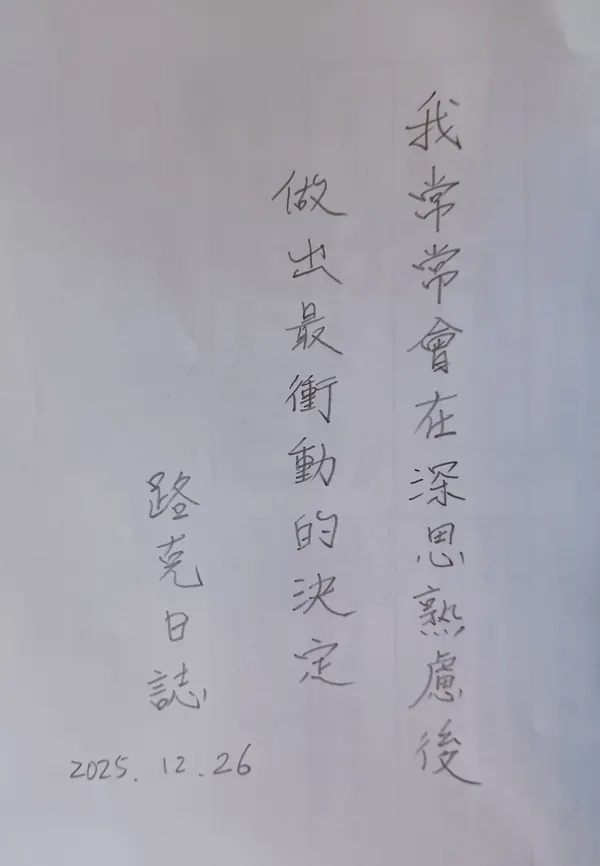 我常常會在深思熟慮後
做出最衝動的決定
路克日誌
2025.12.26